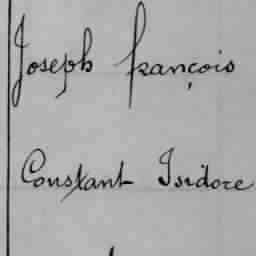 Joseph françois
Constant Isidore